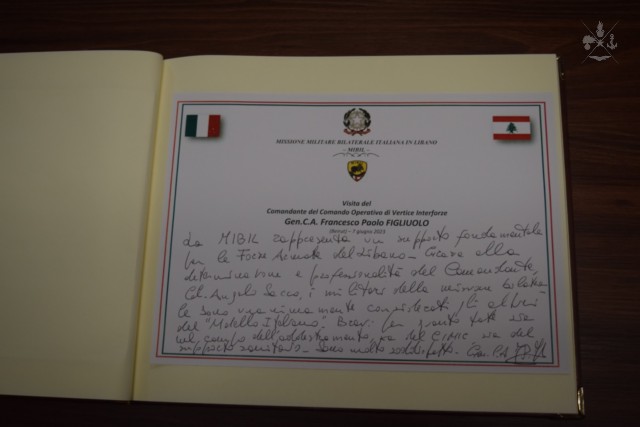 MISSIONE MILITARE BILATERALE ITALIANA IN LIBANO
- MIBIL -
Visita del
Comandante del Comando Operativo di Vertice Interforze
Gen.C.A. Francesco Paolo FIGLIUOLO
(Beirut) – 7 giugno 2023
La MIBIL rappresenta un supporto fondamentale
per le Forze Armate del Libano - Grazie alla
determinazione e professionalità del Comandante,
Col. Angelo Sacco, i militari della missione bilatera-
le sono unanimemente considerati gli alfieri
del "Modello Italiano". Bravi per quanto fatto sia
nel campo dell'addestramento, sia del CIMIC sia del
supporto sanitario - Sono molto soddisfatto - Gen.